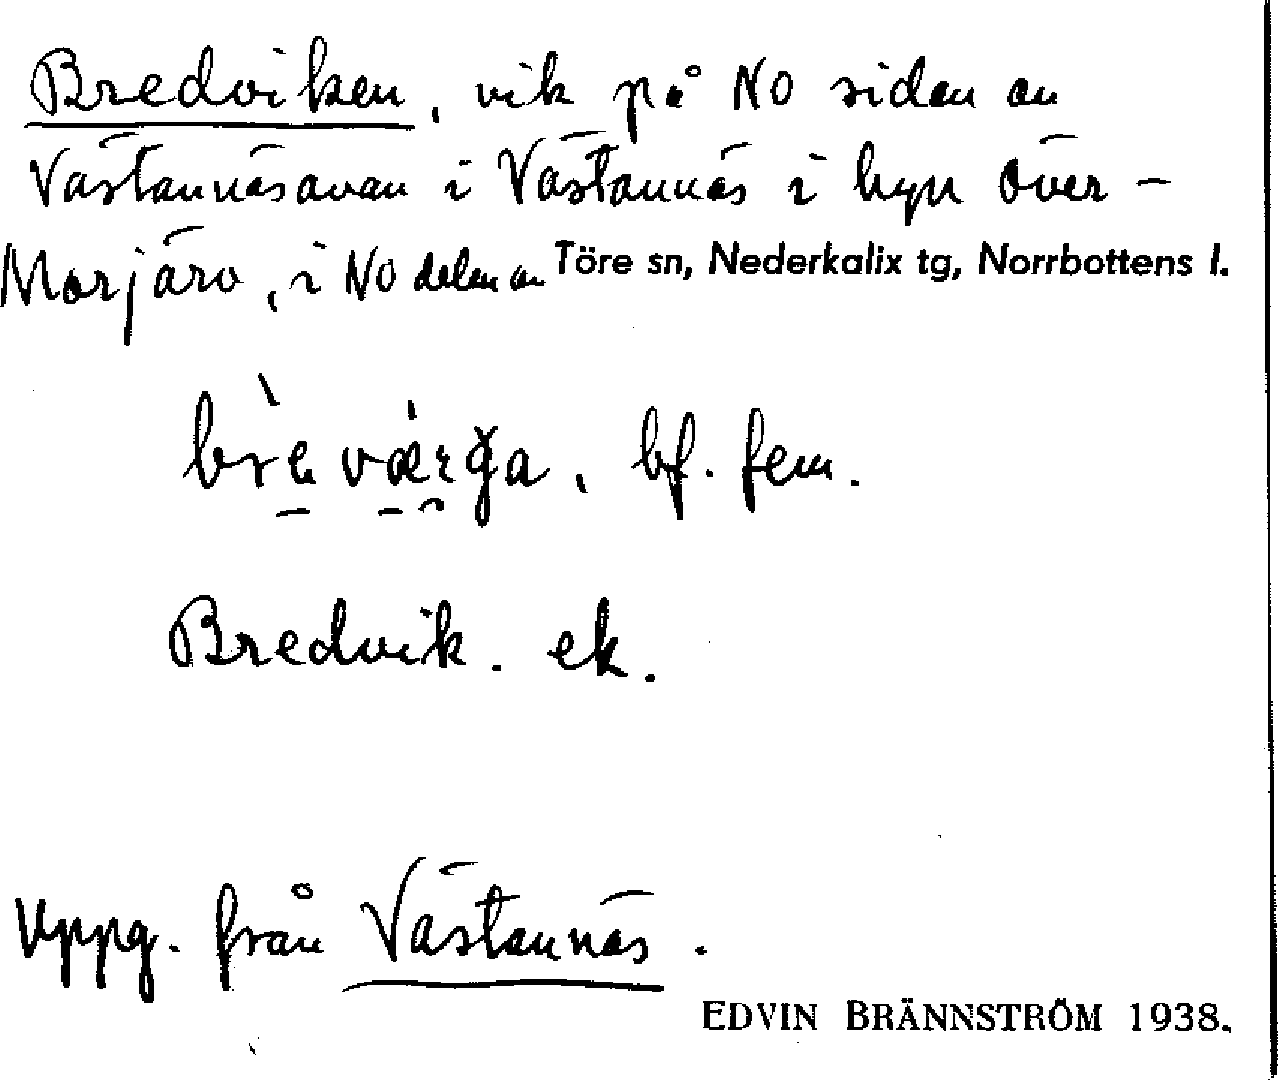 Bredviken, vik på NO sidan av
Västannäsavan i Västannäs i byn Över-
Morjärv, i NO delen av Töre sn, Nederkalix tg, Norrbottens l.
bf. fem.
Bredvik. ek.
Uppg. från Västannäs.
EDVIN BRÄNNSTRÖM 1938.